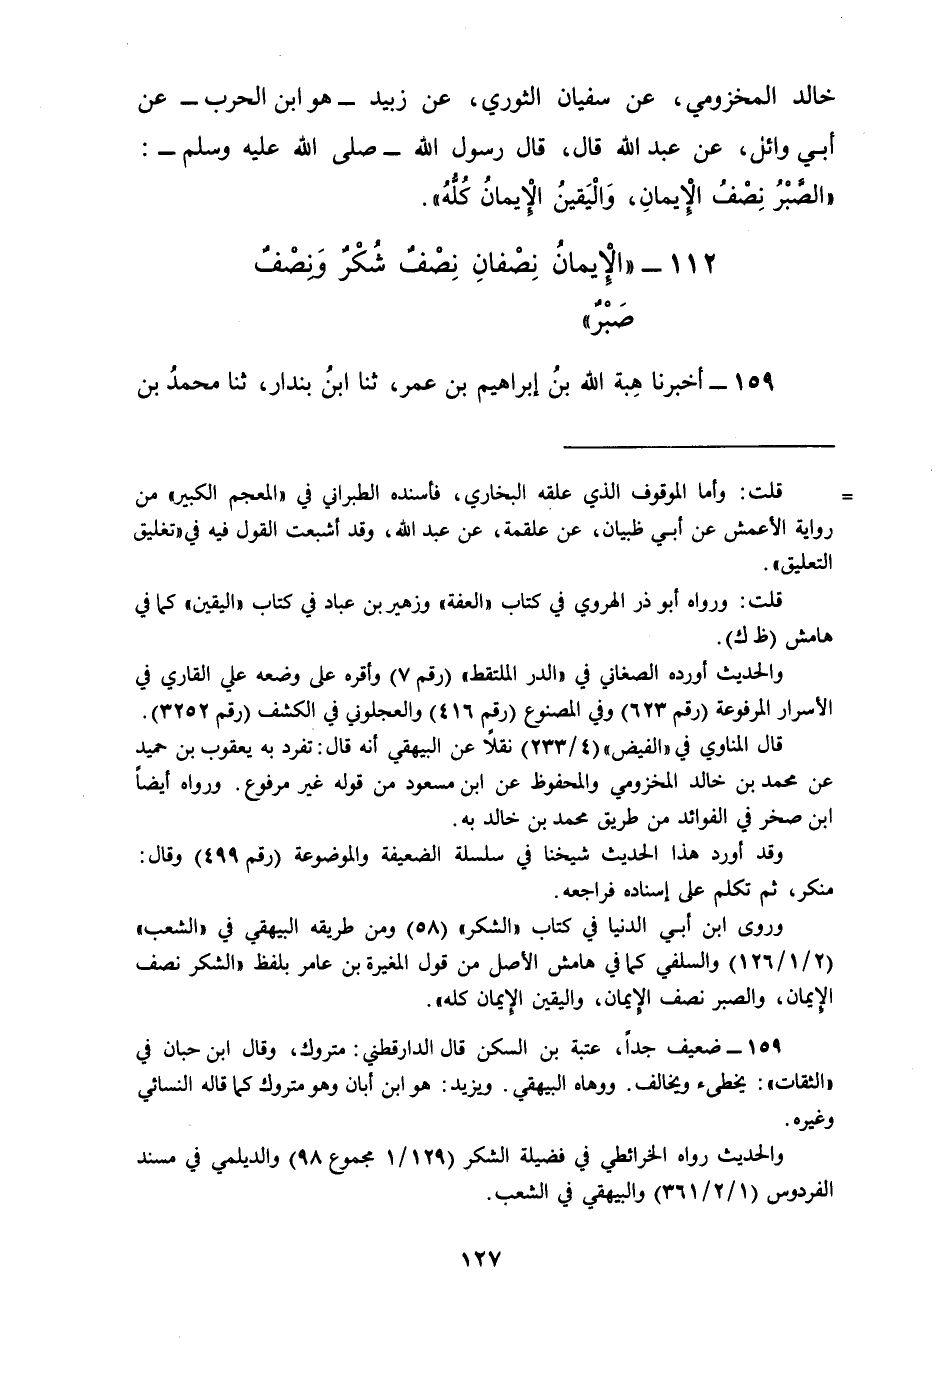 خالد المخزومي، عن سفيان الثوري، عن زبيد ــ هو ابن الحرب ــ عن
أبـي وائل، عن عبد الله قال، قال رسول الله ــ صلى الله عليه وسلم ــ :
«الصَّبْرُ نِصْفُ الإِيمانِ، وَالْيَقينُ الإِيمانُ كُلُّهُ».
١١٢ ــ «الإِيمانُ نِصْفانِ نِصْفٌ شُكْرٌ وَنِصْفٌ
صَبْرٌ»
١٥٩ ــ أخبرنا هِبة الله بنُ إبراهيم بن عمر، ثنا ابنُ بندار، ثنا محمدُ بن
= قلت: وأما الموقوف الذي علقه البخاري، فأسنده الطبراني في «المعجم الكبير» من
رواية الأعمش عن أبـي ظبيان، عن علقمة، عن عبد الله، وقد أشبعت القول فيه في «تغليق
التعليق».
قلت: ورواه أبو ذر الهروي في كتاب «العفة» وزهير بن عباد في كتاب «اليقين» كما في
هامش (ظ ك).
والحديث أورده الصغاني في «الدر الملتقط» (رقم ٧) وأقره على وضعه علي القاري في
الأسرار المرفوعة (رقم ٦٢٣) وفي المصنوع (رقم ٤١٦) والعجلوني في الكشف (رقم ٣٢٥٢).
قال المناوي في «الفيض» (٢٣٣/٤) نقلاً عن البيهقي أنه قال: تفرد به يعقوب بن حميد
عن محمد بن خالد المخزومي والمحفوظ عن ابن مسعود من قوله غير مرفوع. ورواه أيضاً
ابن صخر في الفوائد من طريق محمد بن خالد به.
وقد أورد هذا الحديث شيخنا في سلسلة الضعيفة والموضوعة (رقم ٤٩٩) وقال:
منكر، ثم تكلم على إسناده فراجعه.
وروى ابن أبـي الدنيا في كتاب «الشكر» (٥٨) ومن طريقه البيهقي في «الشعب»
(١٢٦/١/٢) والسلفي كما في هامش الأصل من قول المغيرة بن عامر بلفظ «الشكر نصف
الإِيمان، والصبر نصف الإِيمان، واليقين الإِيمان كله».
١٥٩ ــ ضعيف جداً، عتبة بن السكن قال الدارقطني: متروك، وقال ابن حبان في
«الثقات»: يخطىء ويخالف. ووهاه البيهقي. ويزيد: هو ابن أبان وهو متروك كما قاله النسائي
وغيره.
والحديث رواه الخرائطي في فضيلة الشكر (١/١٢٩ مجموع ٩٨) والديلمي في مسند
الفردوس (٣٦١/٢/١) والبيهقي في الشعب.
١٢٧